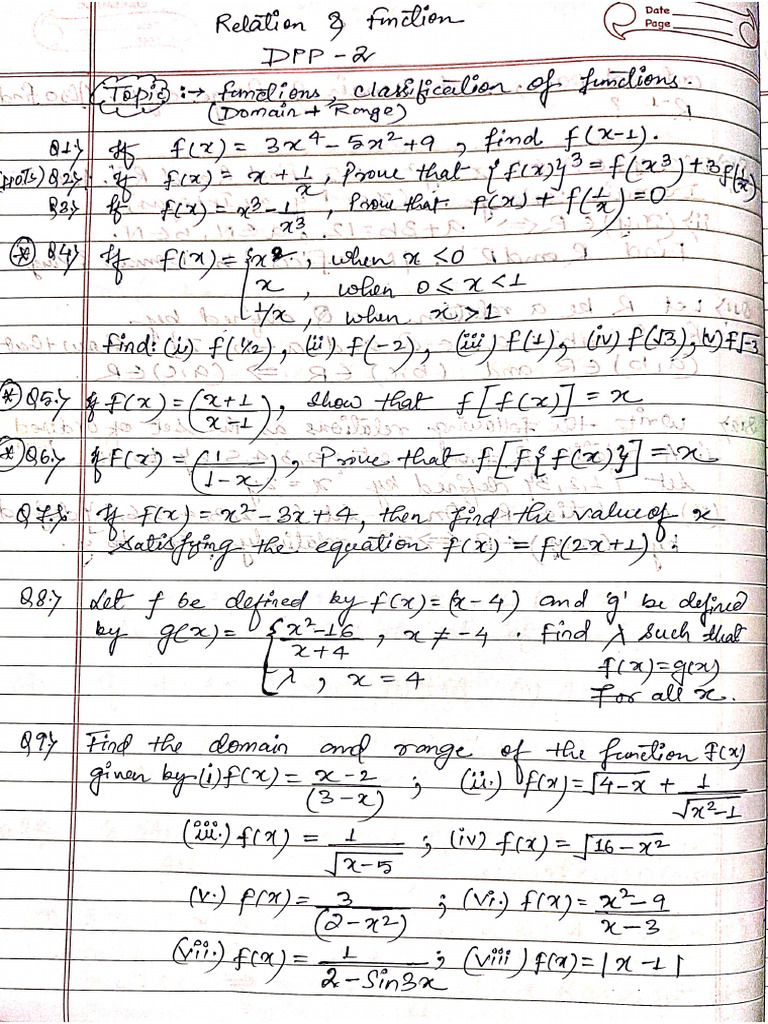 Relation & function
Date
Page
DPP - 2
Topic :→ functions, classification of functions.
(Domain + Range)
Q1} If f(x) = 3x⁴ - 5x² + 9, find f(x-1).
(HOTS) Q2} If f(x) = x + 1/x, Prove that {f(x)}³ = f(x³) + 3f(1/x)
Q3} If f(x) = x³ - 1/x³, Prove that f(x) + f(1/x) = 0
* Q4} If f(x) = { x², when x < 0
x, when 0 ≤ x < 1
1/x, when x > 1
find: (i) f(1/2), (ii) f(-2), (iii) f(1), (iv) f(√3), (v) f√-3
* Q5} If f(x) = (x+1/x-1), show that f[f(x)] = x
* Q6} If f(x) = (1/1-x), Prove that f[f{f(x)}] = x
Q7} If f(x) = x² - 3x + 4, then find the value of x
satisfying the equation f(x) = f(2x+1).
Q8} Let f be defined by f(x) = (x-4) and 'g' be defined
by g(x) = { x²-16/x+4, x ≠ -4 . Find λ such that
λ, x = 4 f(x) = g(x)
For all x.
Q9} Find the domain and range of the function f(x)
given by (i) f(x) = x-2/(3-x) ; (ii.) f(x) = √4-x + 1/√x²-1
(iii.) f(x) = 1/√x-5 ; (iv) f(x) = √16-x²
(v.) f(x) = 3/(2-x²) ; (vi.) f(x) = x²-9/x-3
(vii.) f(x) = 1/2-Sin3x ; (viii) f(x) = |x-1|